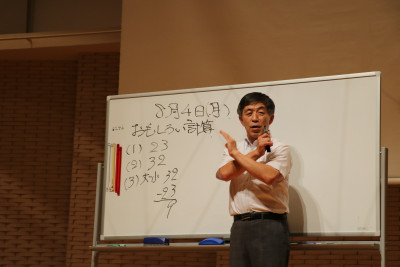 8月4日(月)
おもしろい計算
(1) 23
(2) 32
(3) 大小 32
-23
9